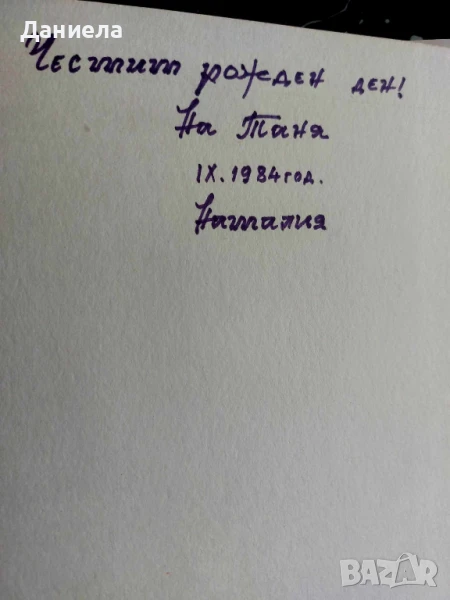 Даниела
Честит рожден ден!
На Таня
IX.1984 год.
Наталия
BAZAR